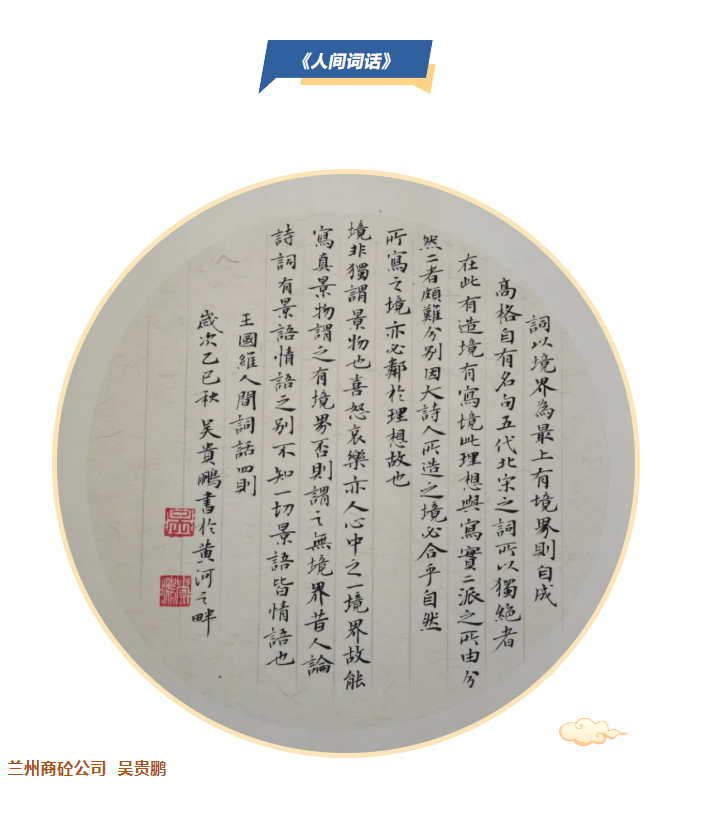 《人间词话》
詞以境界為最上有境界則自成
高格自有名句五代北宋之詞所以獨絕者
在此有造境有寫境此理想與寫實二派之所由分
然二者頗難分別因大詩人所造之境必合乎自然
所寫之境亦必鄰於理想故也
境非獨謂景物也喜怒哀樂亦人心中之一境界故能
寫真景物謂之有境界否則謂之無境界昔人論
詩詞有景語情語之别不知一切景語皆情語也
王國維人間詞話四則
歲次乙巳秋 吴貴鵬書於黄河之畔
兰州商砼公司 吴贵鹏